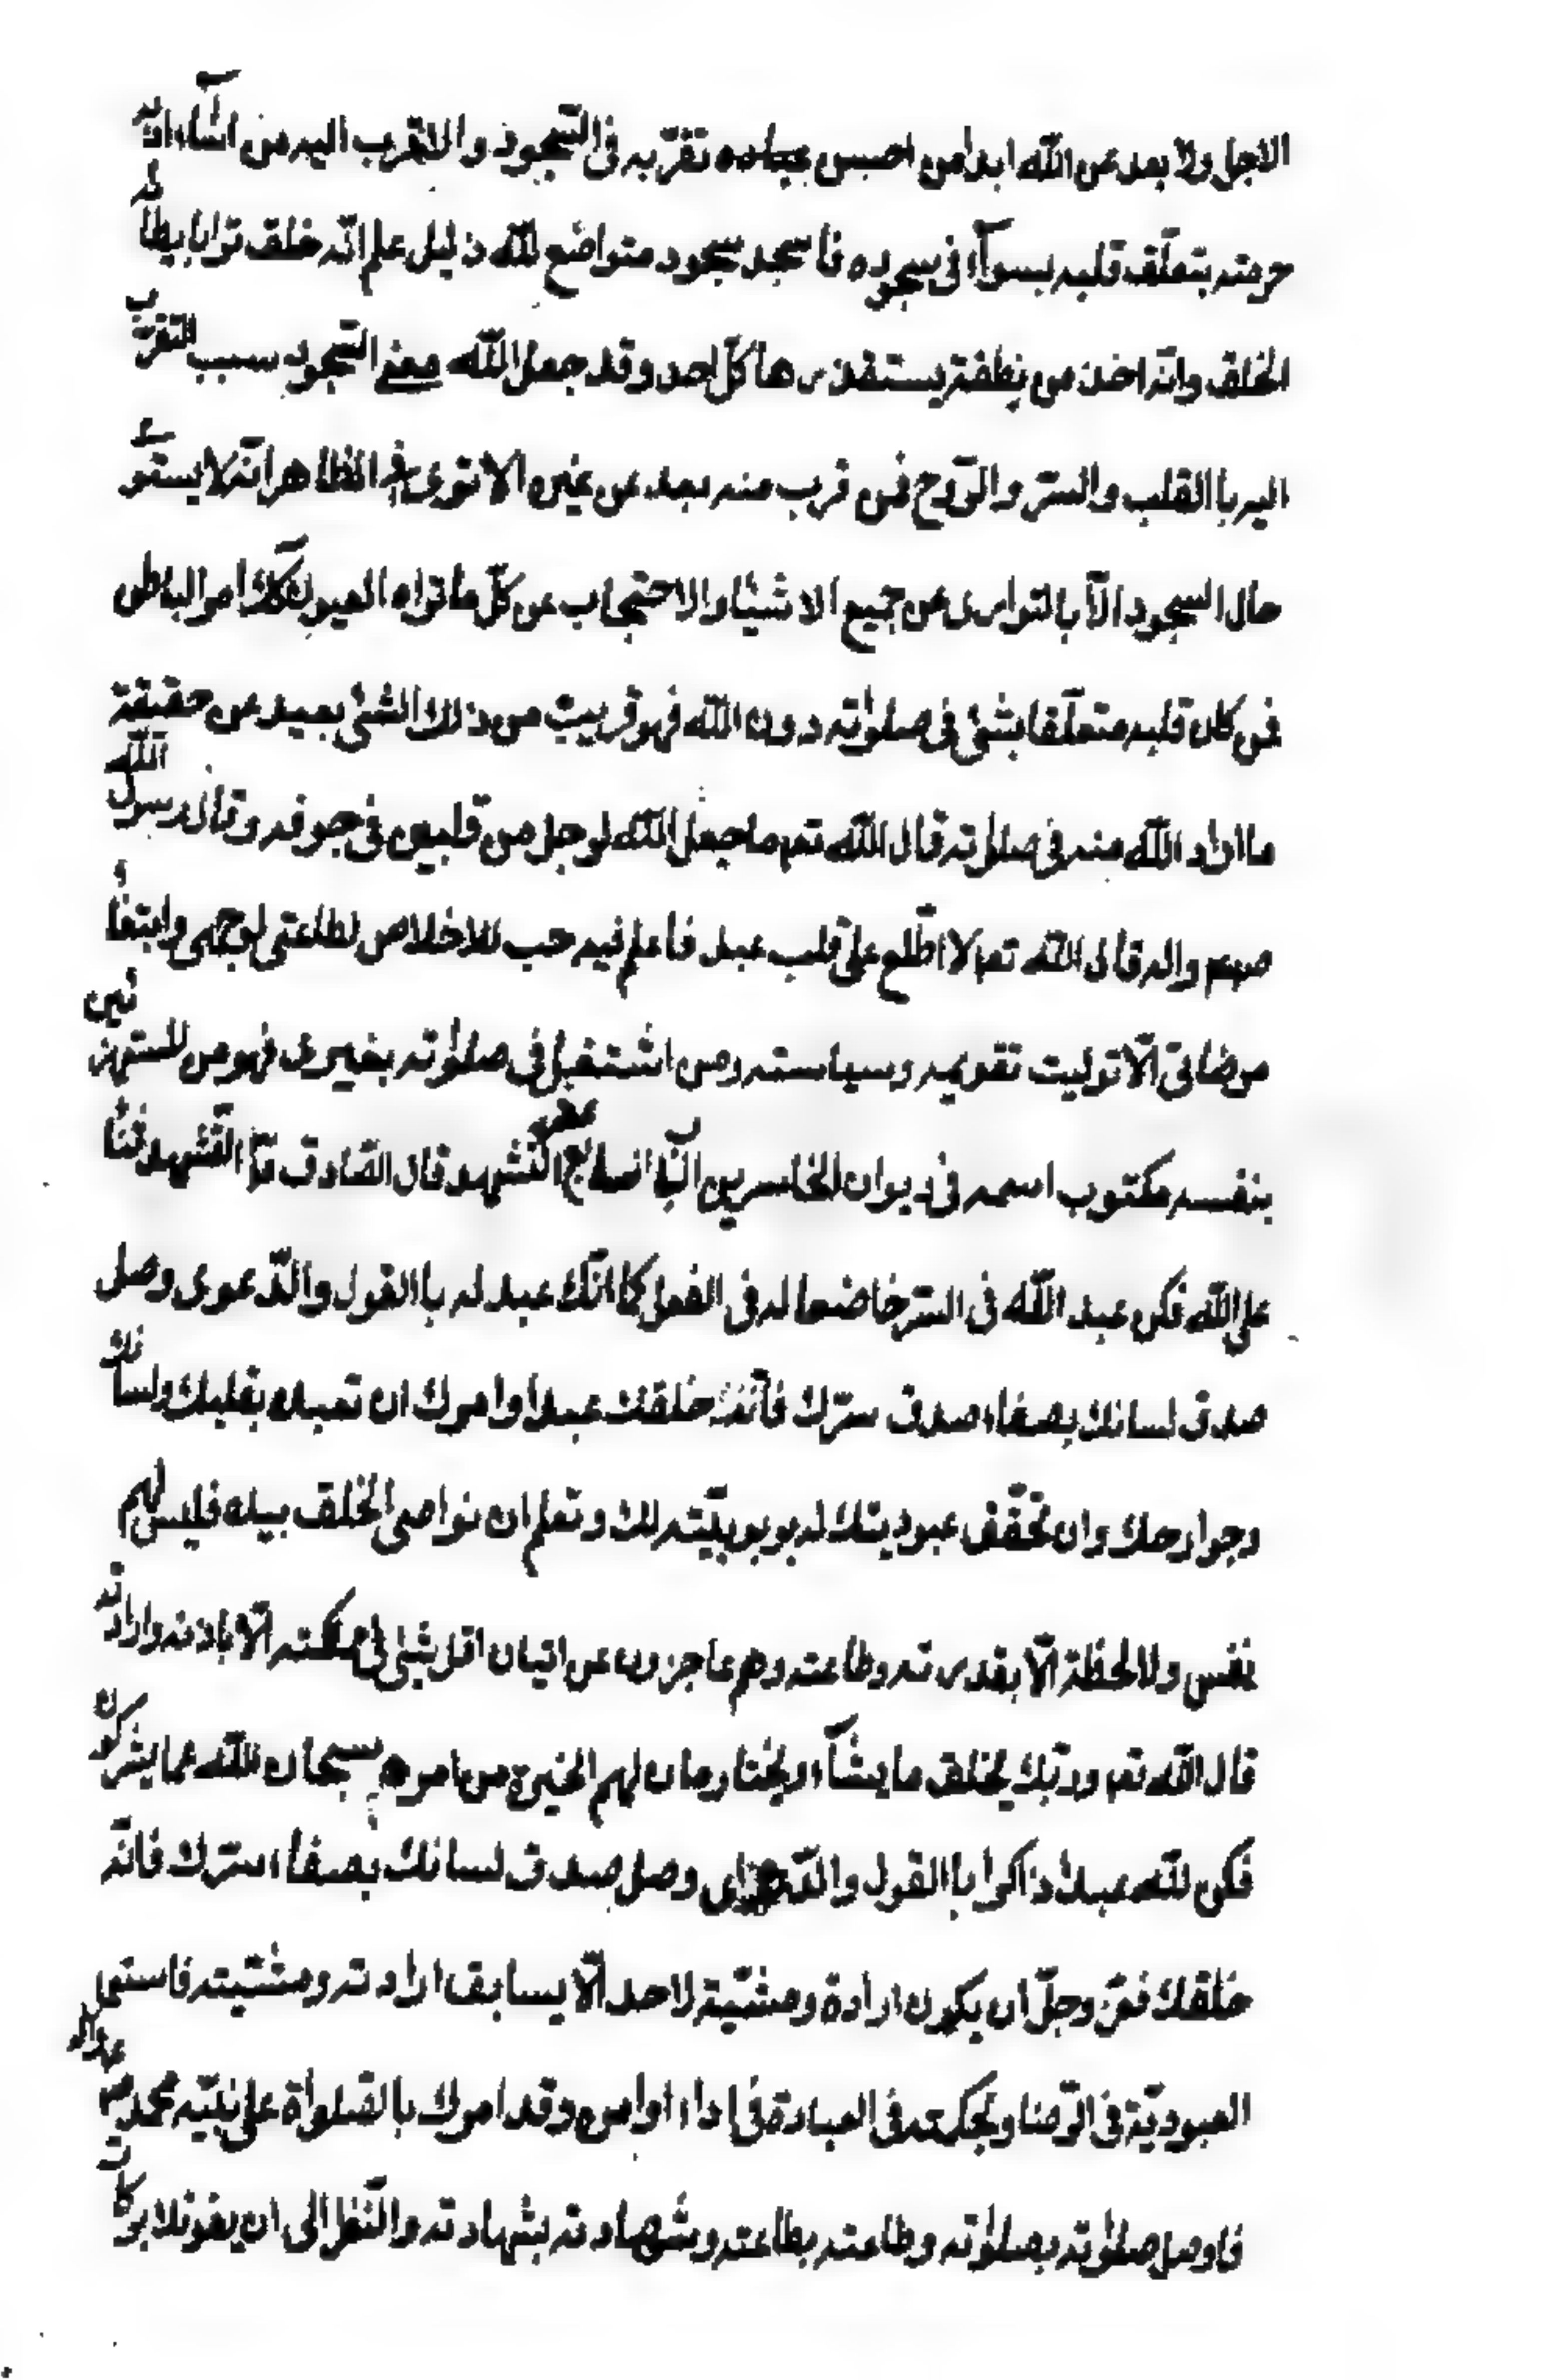 الاجل ولا بعد عن الله ابدا من احسن عباده تقرّبه فى السّجود والا قرب اليه من اساء ادبه
حرمته بتعلّق قلبه بسواه فى سجوده فاسجد سجود متواضع لله ذليل علم انّه خلق تراب يطأه
الخلق وانّه اتخذ من نطفة يستقذرها كلّ احد وقد جعل الله معنى السّجود سبب التقرّب
اليه باالقلب والسّر والرّوح فمن قرب منه بعد عن غيره الا ترى فى الظاهر انّه لا يستوى
حال السجود الّا بالتوارى عن جميع الاشياء والاحتجاب عن كلّ ما تراه العيون كذلك امر الباطن
فمن كان قلبه متعلّقا بشئ فى صلوٰته دون الله فهو قريب من ذلك الشئ بعيد عن حقيقة
ما اراد الله منه فى صلوٰته قال الله تعه ما جعل الله لرجل من قلبين فى جوفه وقال رسول الله
صعم واله قال الله تعه لا اطّلع على قلب عبد فاعلم فيه حب للاخلاص لطاعتى لوجهى وابتغاء
مرضاتى الّا توليت تقويمه وسياسته ومن اشتغل فى صلوٰته بغيرى فهو من المستهزئين
بنفسه مكتوب اسمه فى ديوان الخاسرين الباب السابع عشر فى التّشهد قال الصّادق ع التّشهد ثناء
على الله فكن عبد الله فى السّر خاضعا له فى الفعل كما انّك عبد له باالقول والدّعوى وصل
صدق لسانك بصفاء صدق سرّك فانّه خلقك عبدا وامرك ان تعبده بقلبك ولسانك
وجوارحك وان تحقّق عبوديتك له بربوبيّته لك وتعلم ان نواصى الخلق بيده فليس لهم
نفس ولا لحظة الّا بقدرته وطاعته وهم عاجزون عن اتيان اقل شئ فى مملكته الّا باذنه وارادته
قال الله تعه وربّك يخلق ما يشآء ويختار ما كان لهم الخيرة من امرهم سبحان الله عما يشركون
فكن لله عبدا ذاكرا باالقول والدّعوى وصل صدق لسانك بصفاء سرّك فانّه
خلقك فعزّ وجلّ ان يكون ارادة ومشيّة لاحد الّا بسابق ارادته ومشيّته فاستعمل
العبوديّة فى الرّضا وبحكمته فى العبادة فى اداء اوامره وقد امرك بالصّلواة على نبيّه محمد ص واله
فاوصل صلوٰته بصلوٰته وطاعته بطاعته وشهادته بشهادته والنّظر الى ان يفوتلا بركات